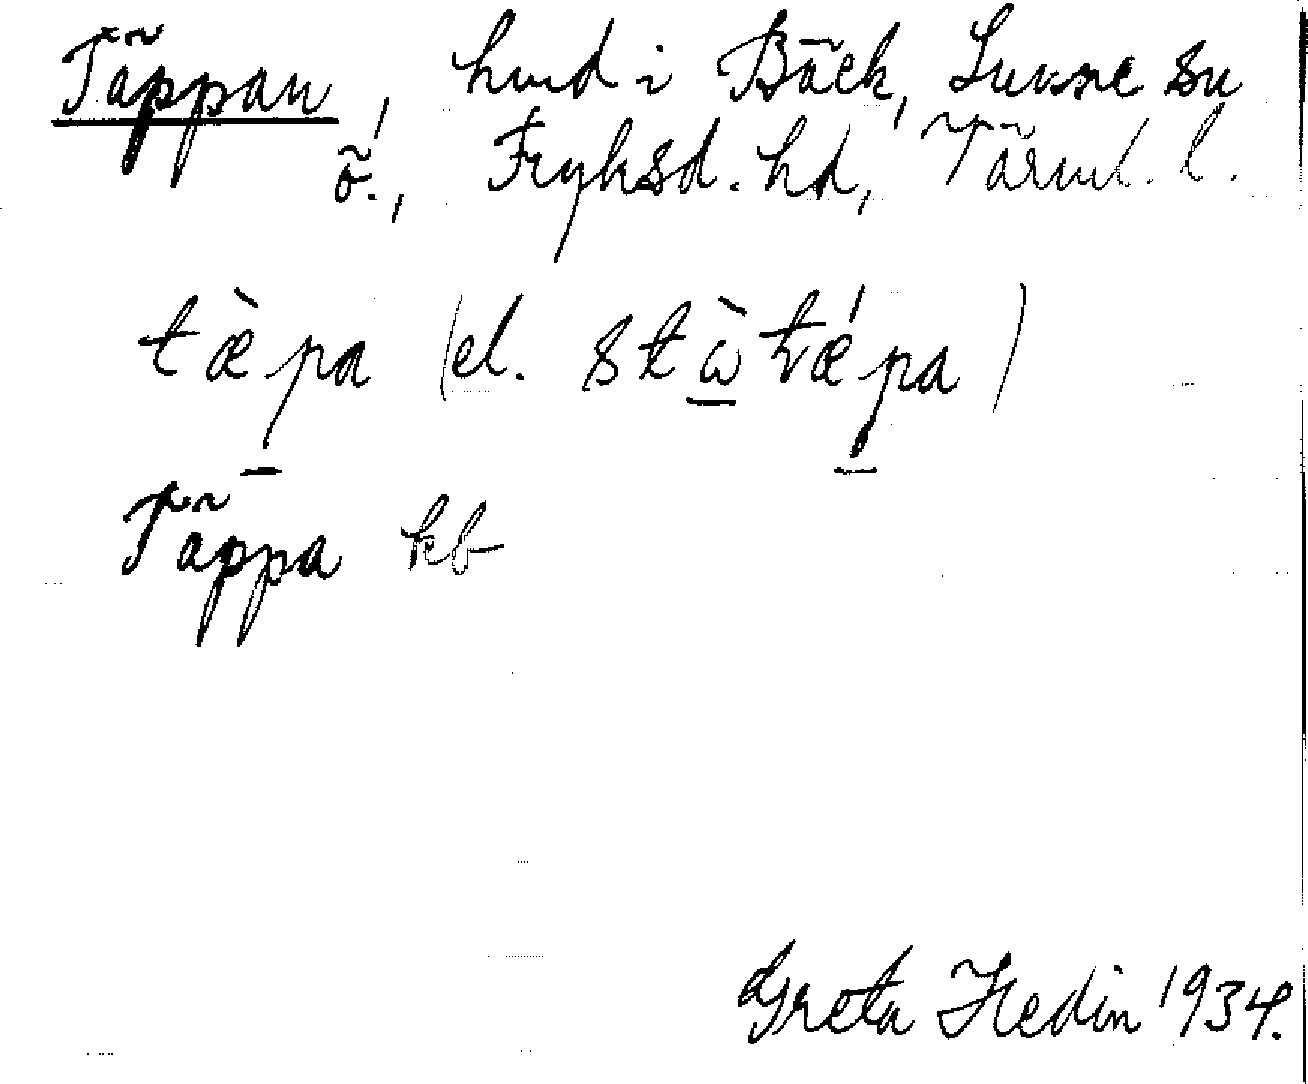 Täppan, hmd i Bäck, Sunne sn
ö., Fryksd. hd, Värml. l.
tæ̀pa (el. stὼtǽpa)
Täppa kb
Greta Hedin 1934.